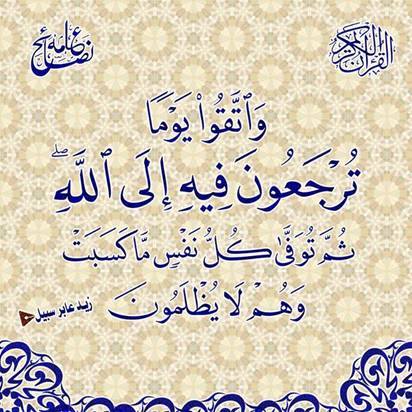 القرآن الكريم
نصائح عامة
وَٱتَّقُوا۟ يَوْمًا
تُرْجَعُونَ فِيهِ إِلَى ٱللَّهِ ۖ
ثُمَّ تُوَفَّىٰ كُلُّ نَفْسٍ مَّا كَسَبَتْ
وَهُمْ لَا يُظْلَمُونَ
زيد عابر سبيل